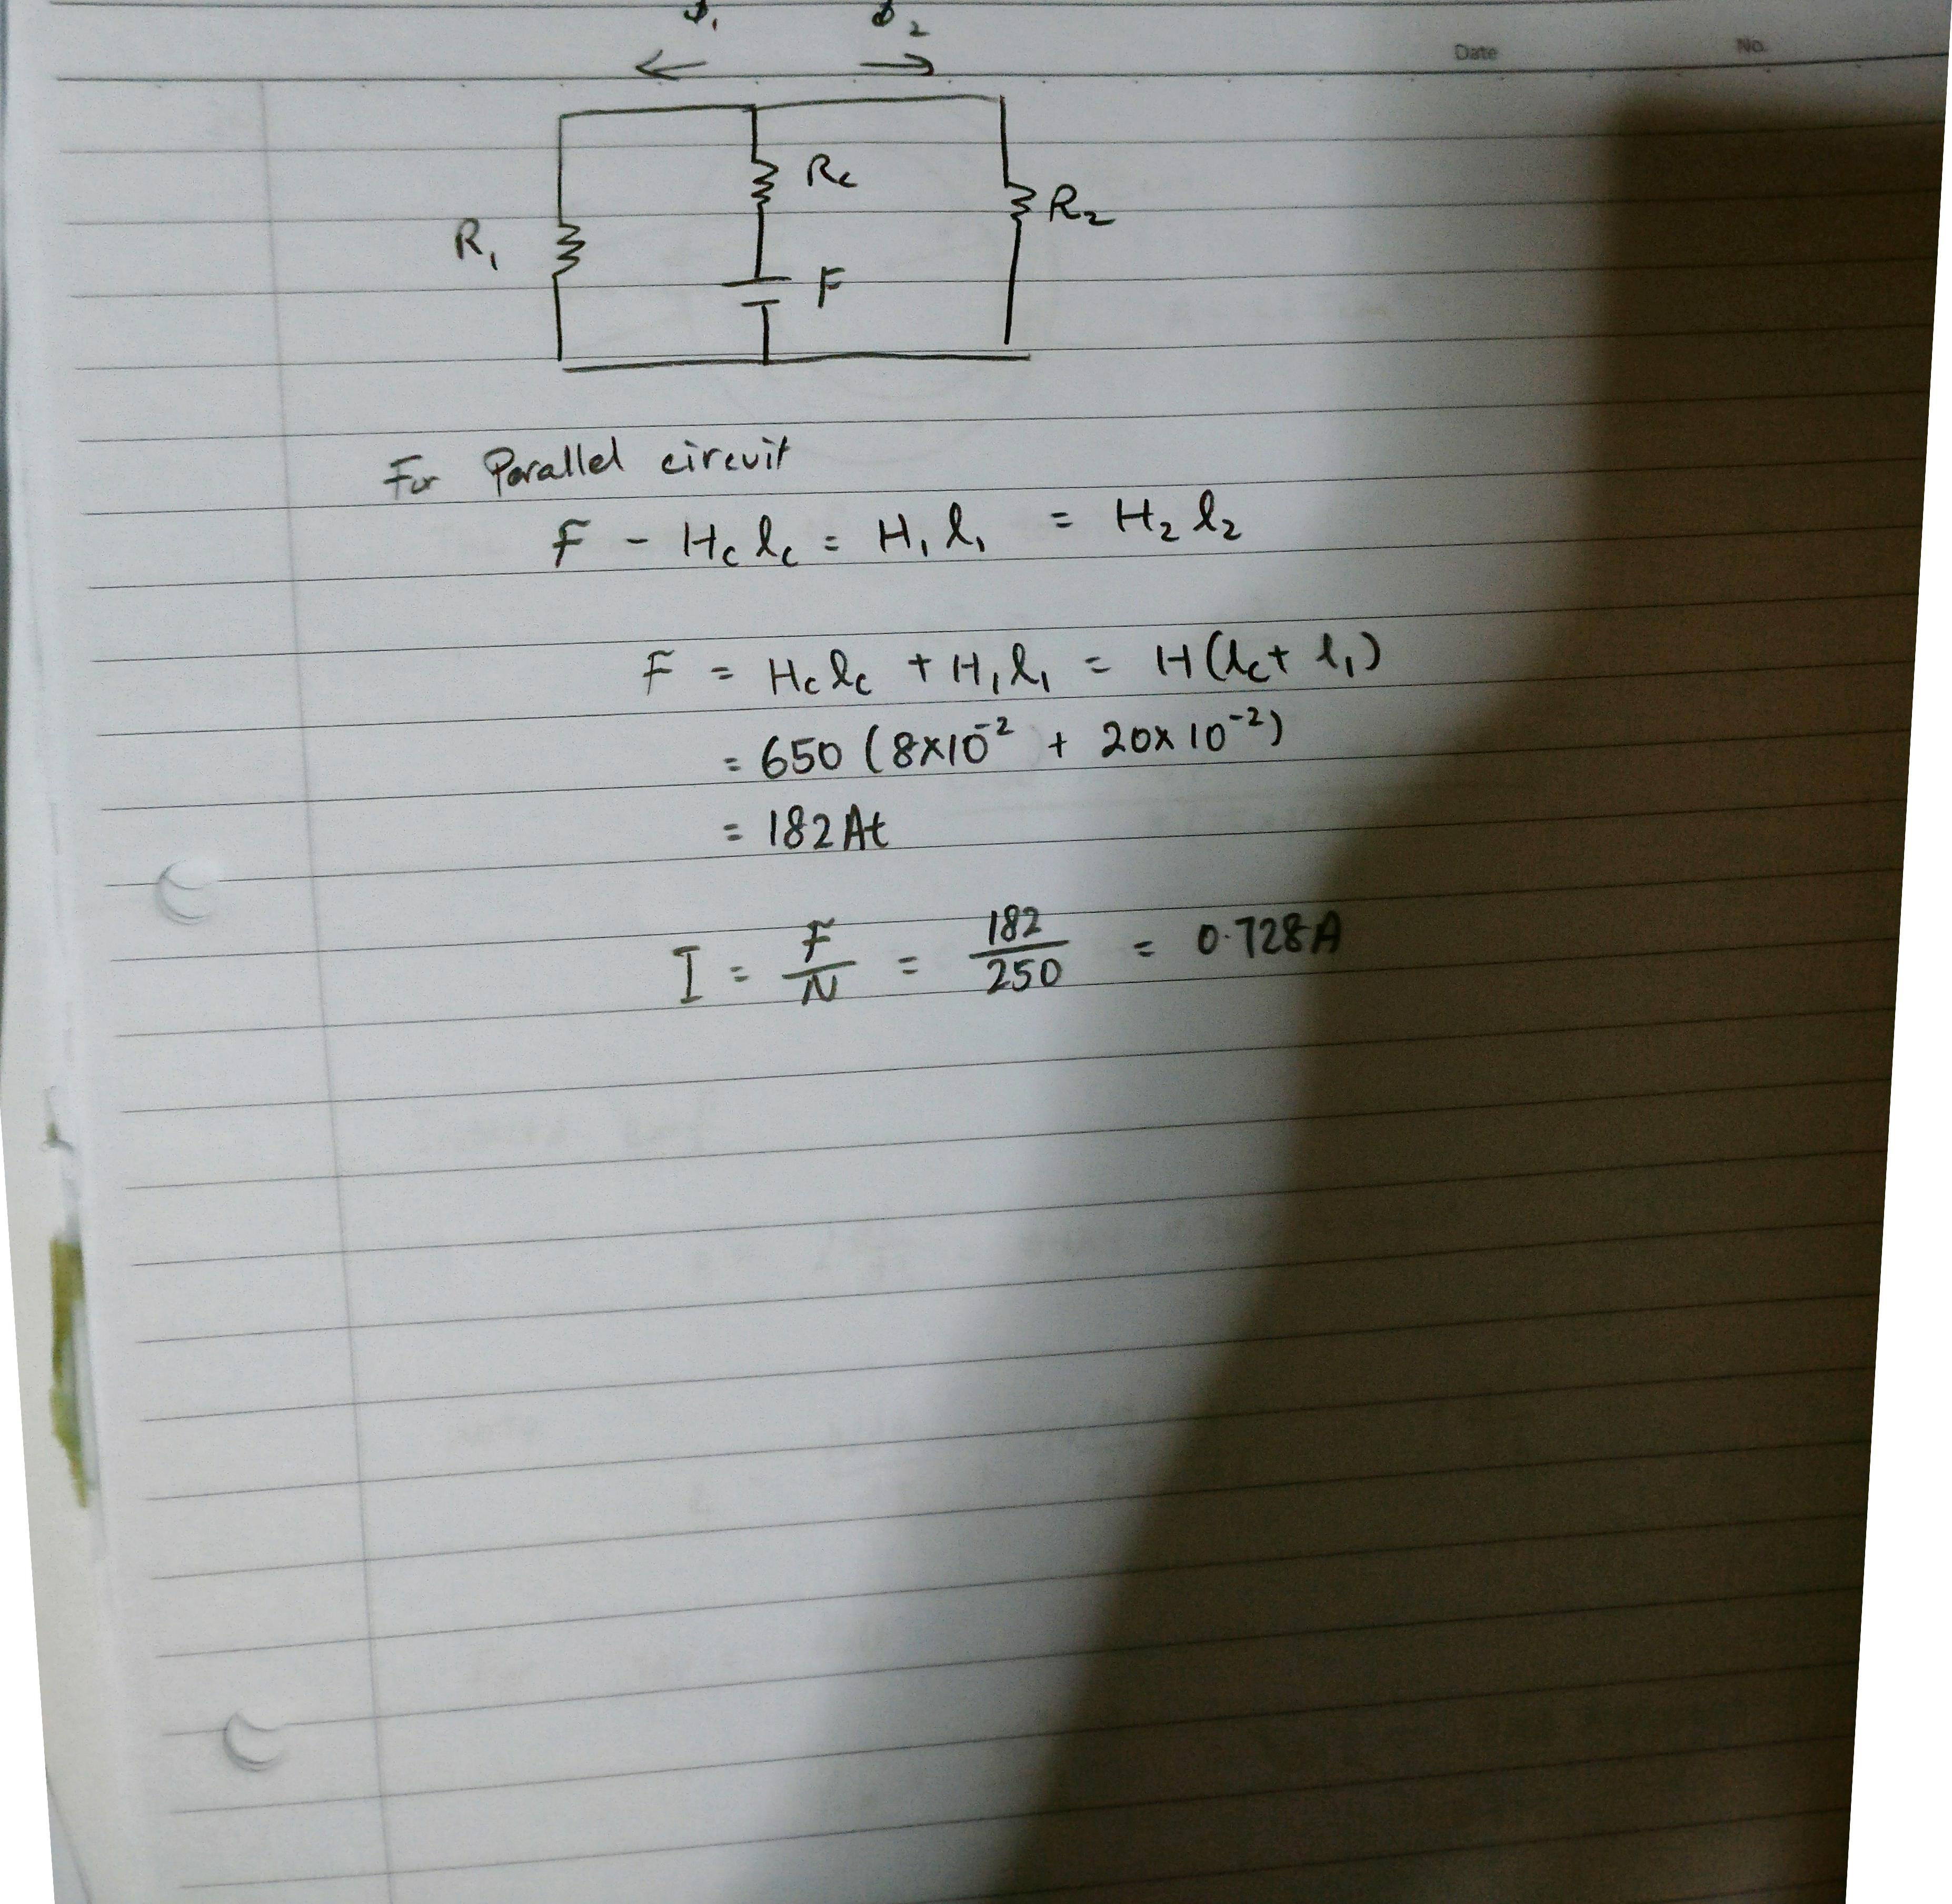 Φ₁ Φ₂
Date No.
← →
Rc
R₁ R₂
F
For Parallel circuit
F - Hc lc = H₁ l₁ = H₂ l₂
F = Hc lc + H₁ l₁ = H(lc + l₁)
= 650 (8×10⁻² + 20×10⁻²)
= 182 At
I = F/N = 182/250 = 0.728A